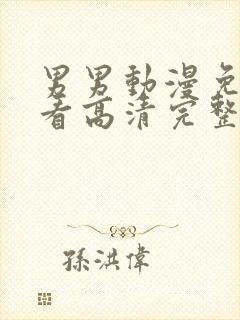 男男動漫免
看高清完整
孫洪偉